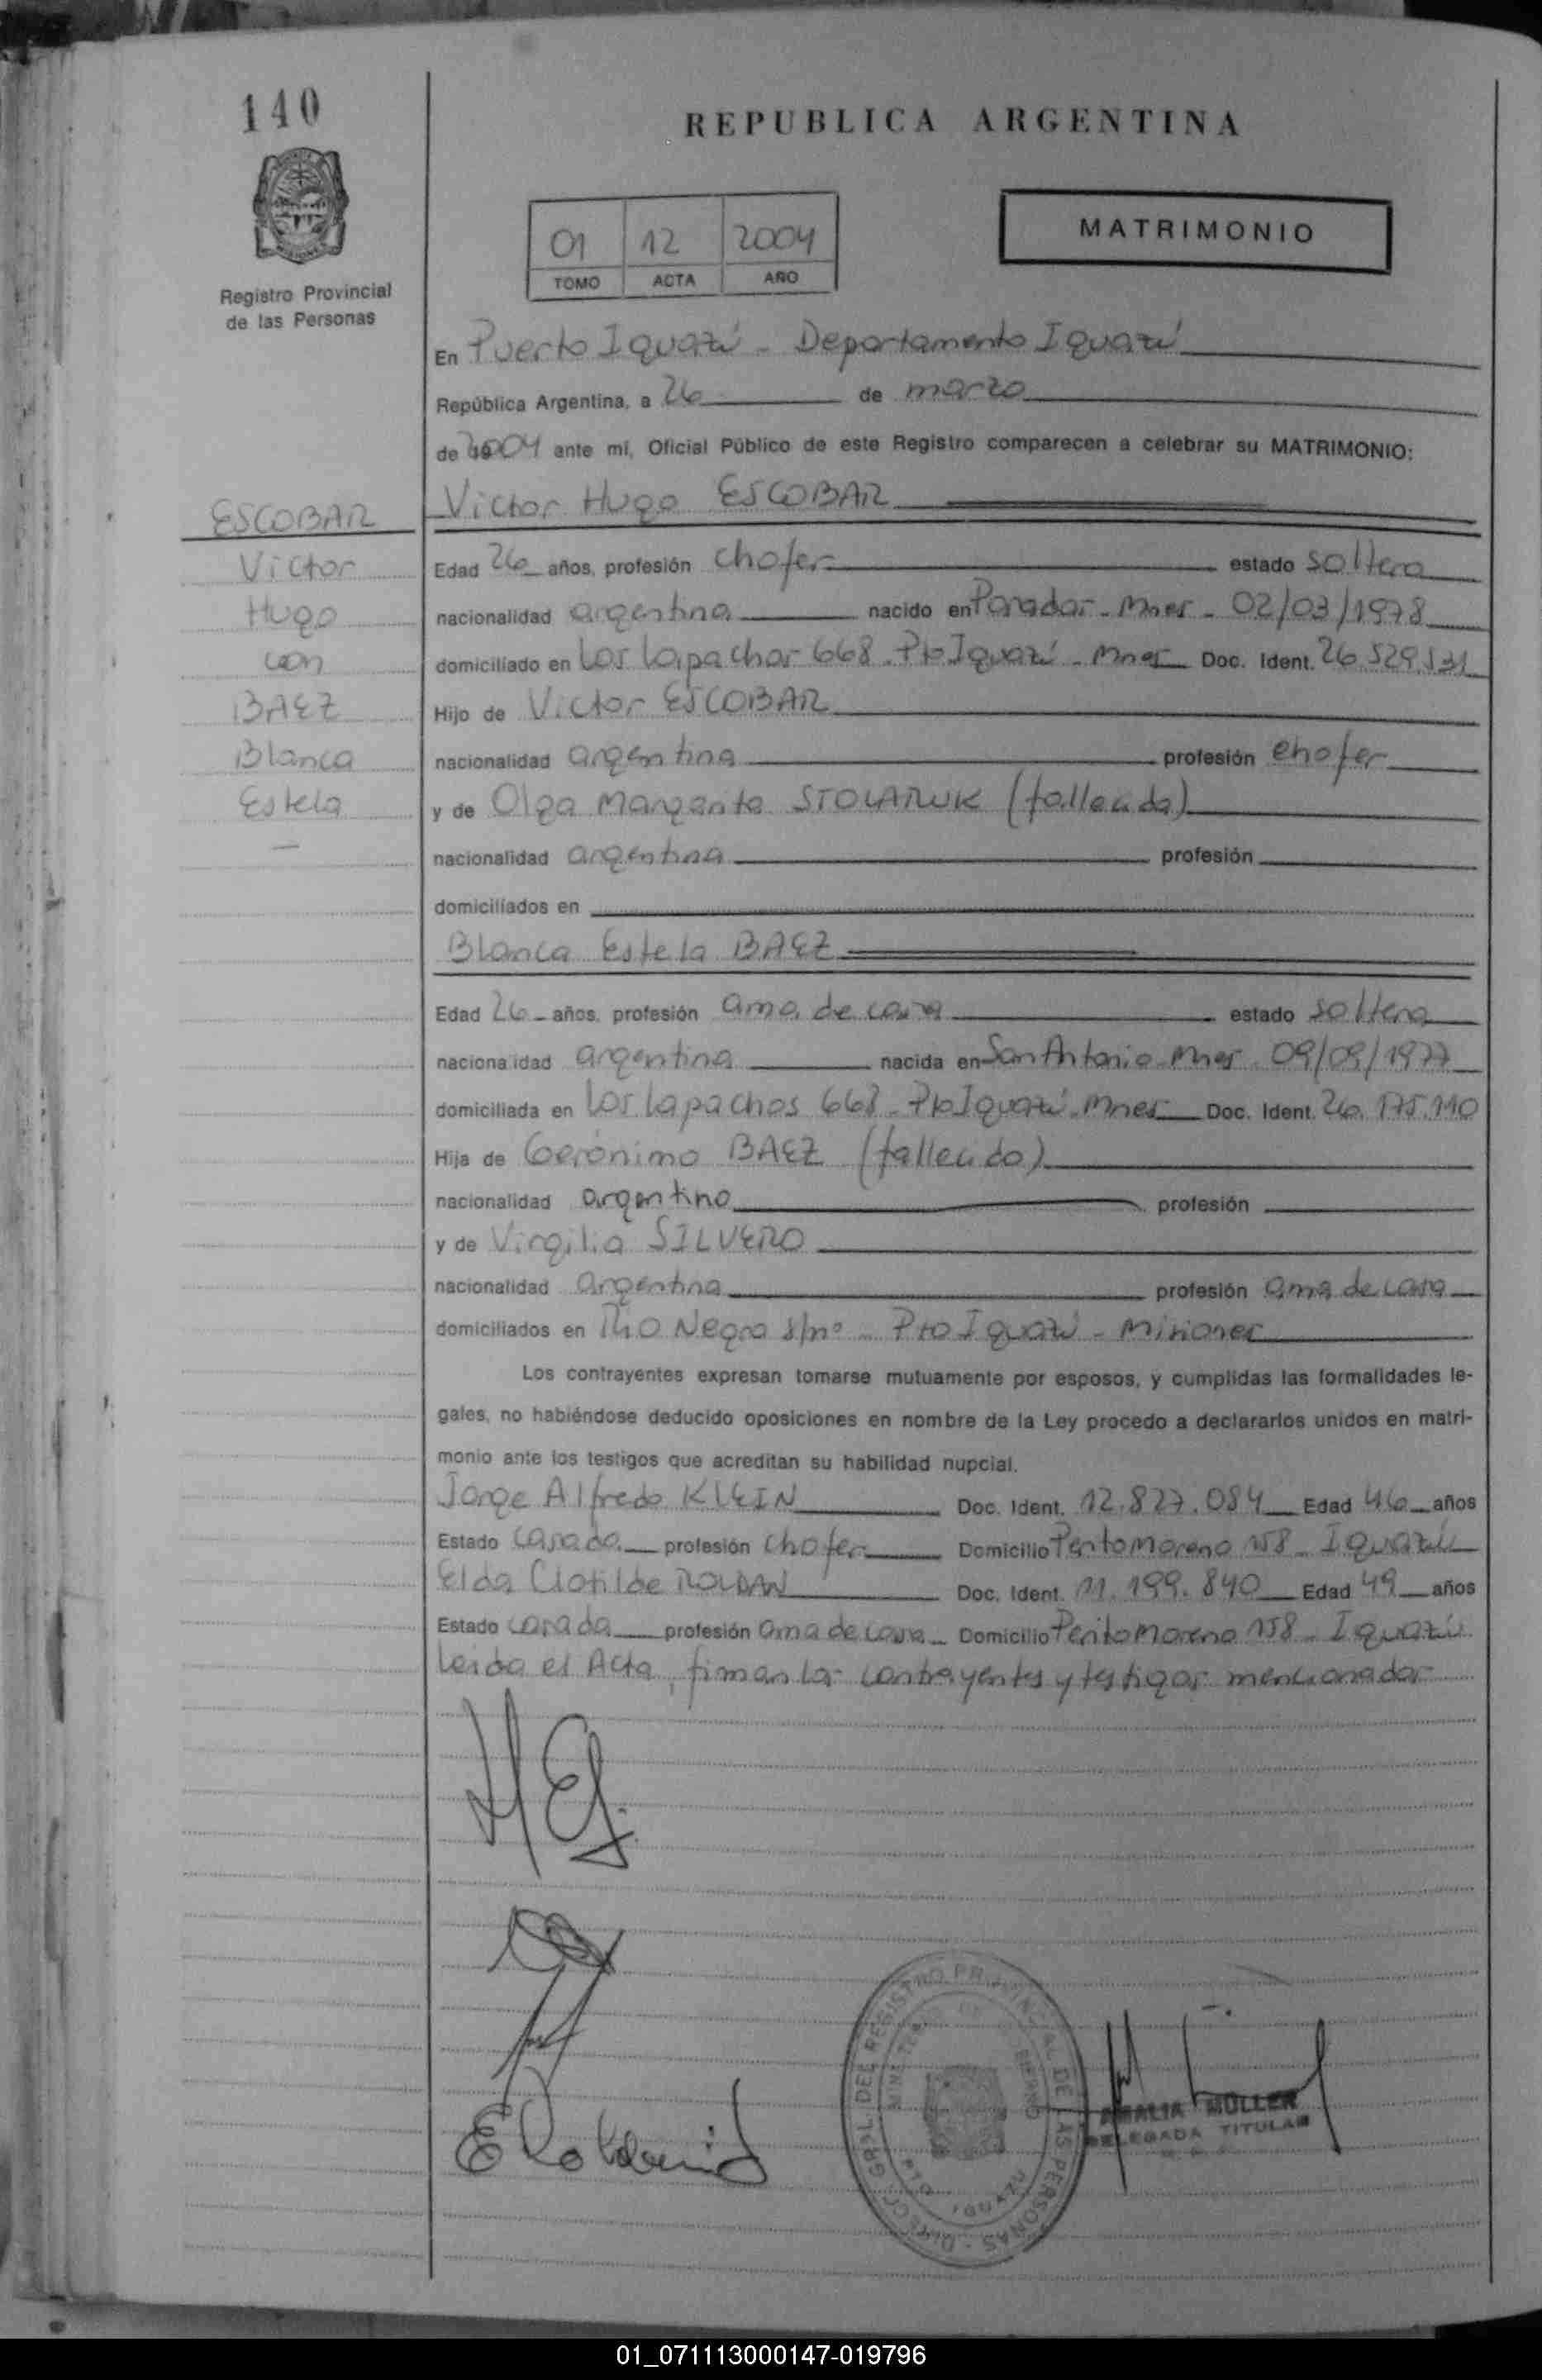 140
REPUBLICA ARGENTINA
Registro Provincial
de las Personas
01 12 2004
TOMO ACTA AÑO
MATRIMONIO
En Puerto Iguazú - Departamento Iguazú
República Argentina, a 26 de marzo
de 2004 ante mí, Oficial Público de este Registro comparecen a celebrar su MATRIMONIO:
ESCOBAR
Victor
Hugo
con
BAEZ
Blanca
Estela
Victor Hugo ESCOBAR
Edad 26 años, profesión chofer estado soltero
nacionalidad argentina nacido en Mnes - 02/03/1978
domiciliado en Los Lapachos 668 - Pto Iguazú - Mnes Doc. Ident. 26.529.531
Hijo de Victor ESCOBAR
nacionalidad argentina profesión chofer
y de Olga Margarita STOLARUK (fallecida)
nacionalidad argentina profesión
domiciliados en
Blanca Estela BAEZ
Edad 26 años, profesión ama de casa estado soltera
nacionalidad argentina nacida en San Antonio - Mnes - 09/09/1977
domiciliada en Los Lapachos 668 - Pto Iguazú - Mnes Doc. Ident. 26.175.110
Hija de Gerónimo BAEZ (fallecido)
nacionalidad argentino profesión
y de Virgilia SILVERO
nacionalidad argentina profesión ama de casa
domiciliados en Rio Negro s/nº - Pto Iguazú - Misiones
Los contrayentes expresan tomarse mutuamente por esposos, y cumplidas las formalidades le-
gales, no habiéndose deducido oposiciones en nombre de la Ley procedo a declararlos unidos en matri-
monio ante los testigos que acreditan su habilidad nupcial.
Jorge Alfredo KLEIN Doc. Ident. 12.827.084 Edad 46 años
Estado casado profesión chofer Domicilio Perito Moreno 158 - Iguazú
Elda Clotilde ROLDAN Doc. Ident. 11.199.840 Edad 49 años
Estado casada profesión ama de casa Domicilio Perito Moreno 158 - Iguazú
Leída el Acta, firman los contrayentes y testigos mencionados
DIRECC. GRAL. DEL REGISTRO PROVINCIAL DE LAS PERSONAS
AMALIA MULLER
DELEGADA TITULAR
01_071113000147-019796